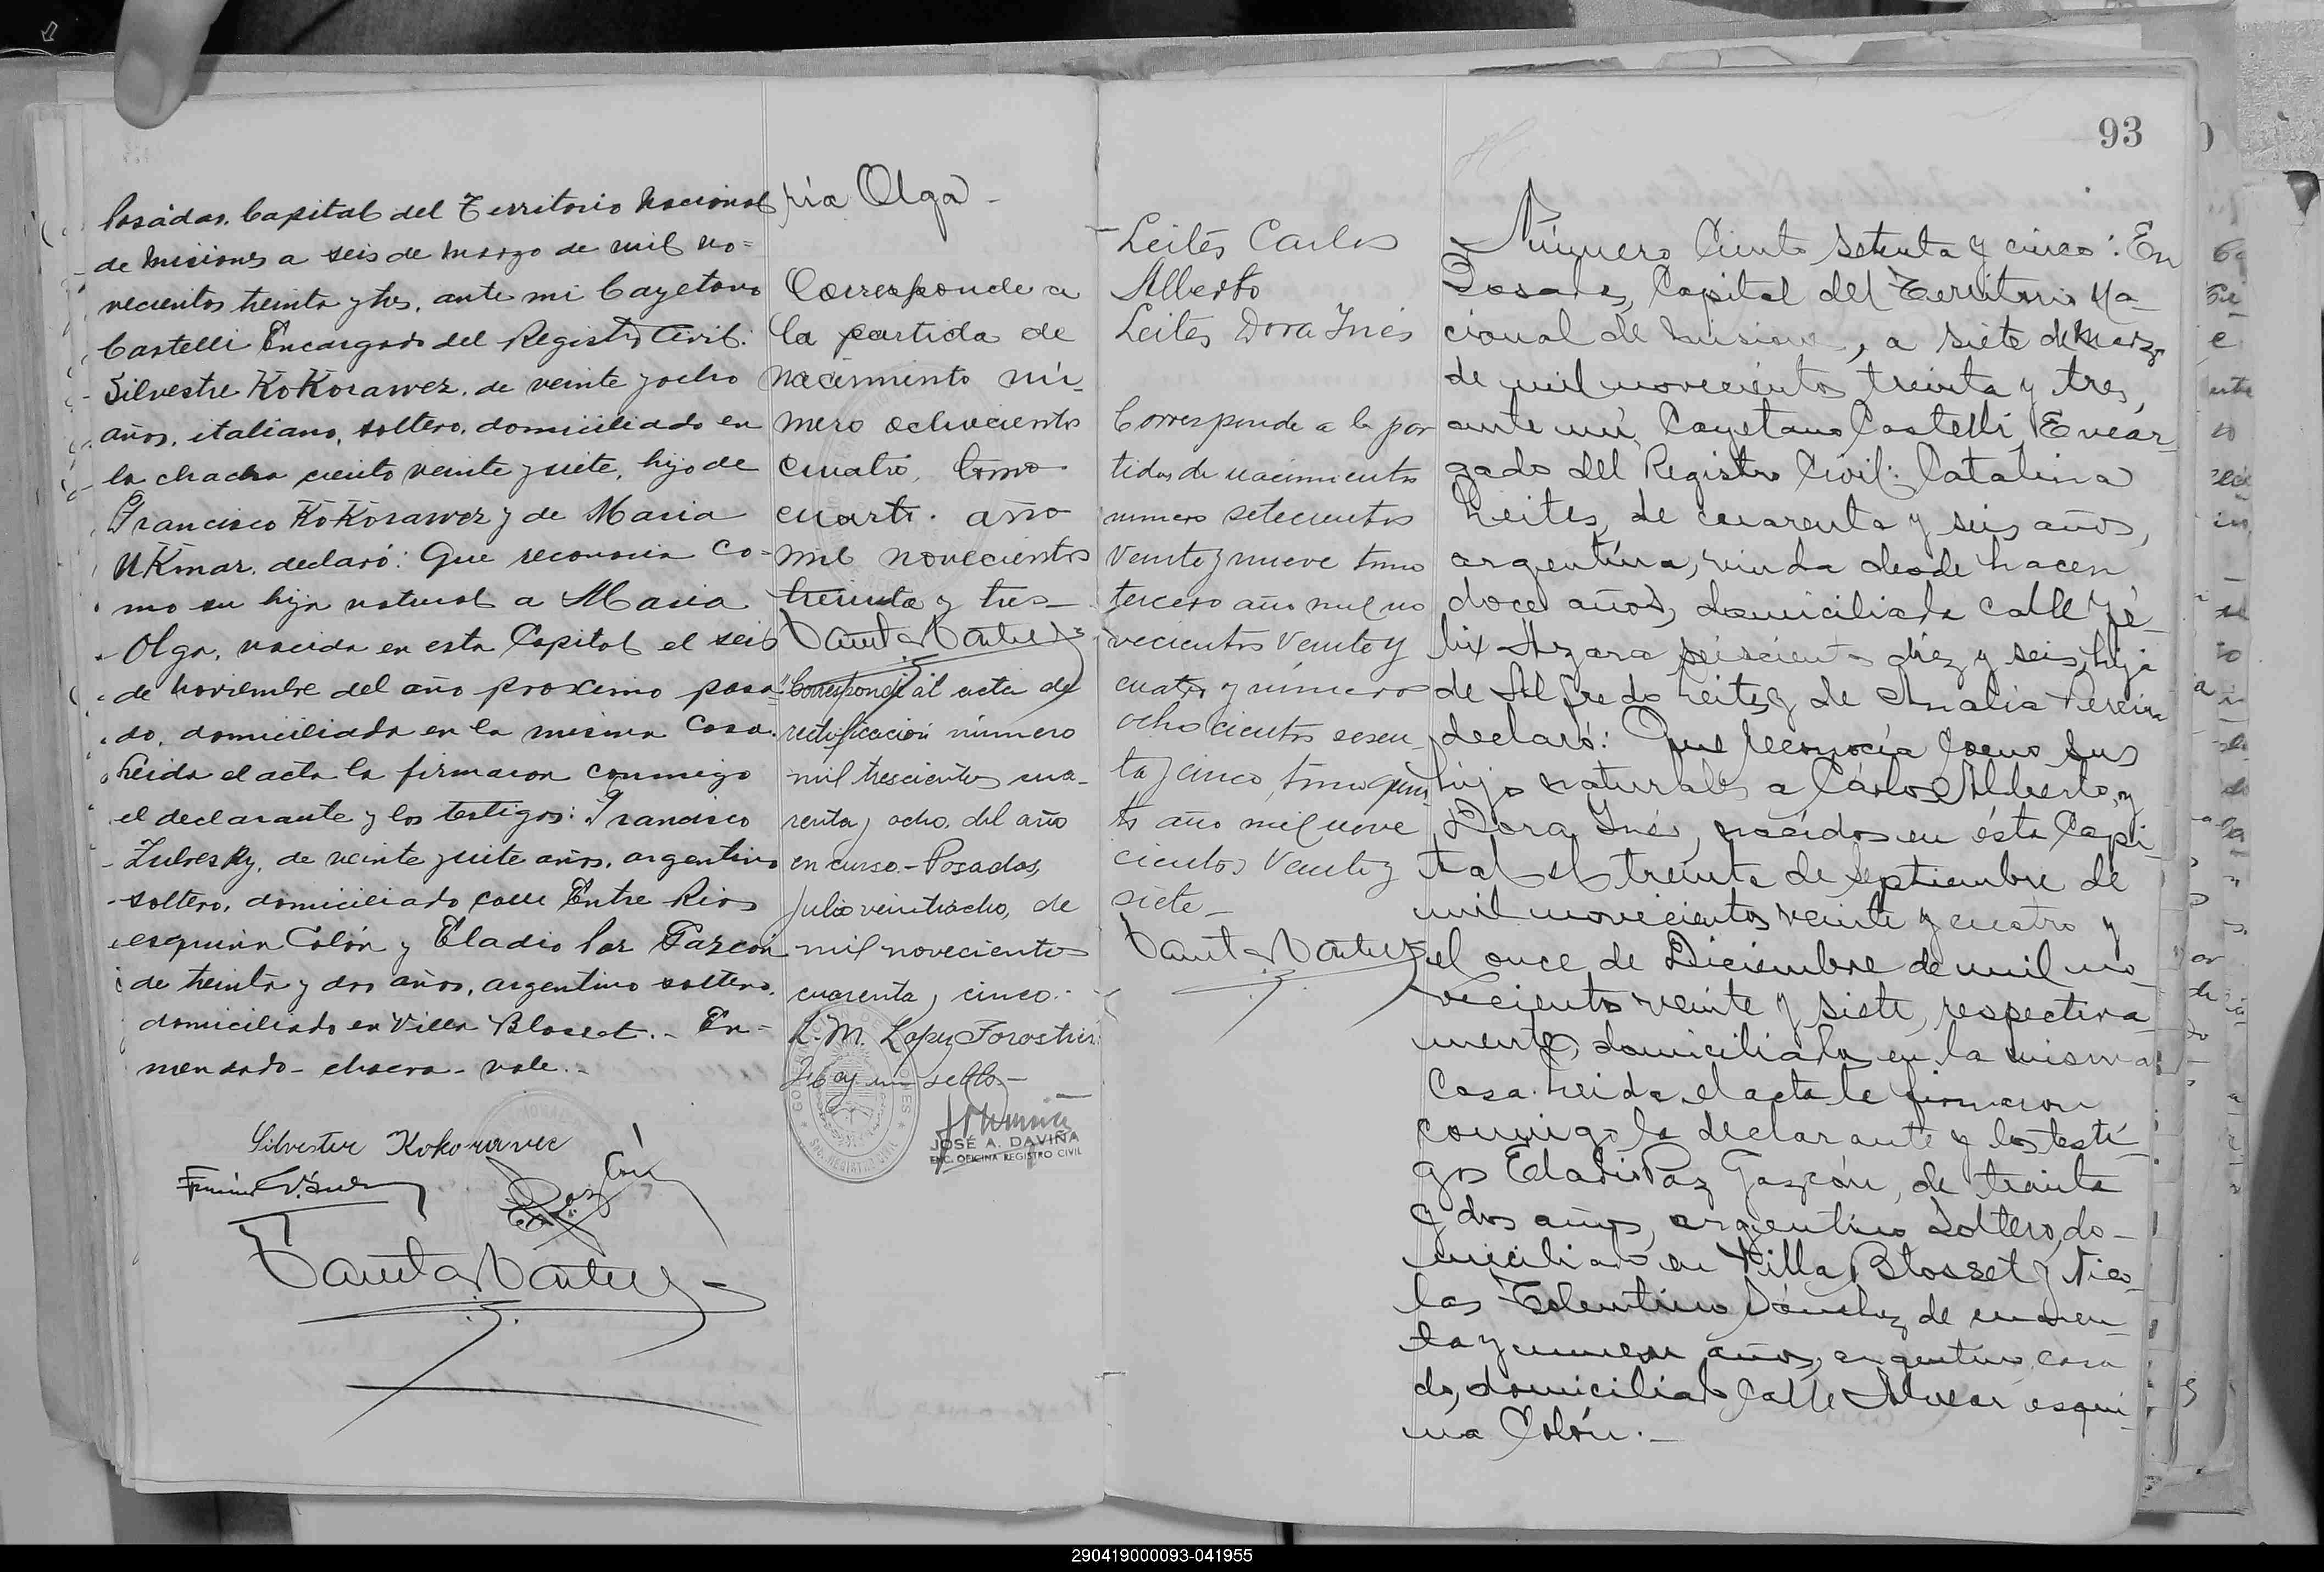 Posadas, Capital del Territorio Nacional
de Misiones a seis de Marzo de mil no=
vecientos treinta y tres, ante mi Cayetano
Castelli Encargado del Registro Civil:
Silvestre Kokorawez, de veinte y ocho
años, italiano, soltero, domiciliado en
la chacra ciento veinte y siete, hijo de
Francisco Kokorawez y de Maria
Ukmar, declaró: Que reconocia co=
mo su hija natural a Maria
Olga, nacida en esta Capital el seis
de Noviembre del año proximo pasa=
do, domiciliada en la misma casa.
Leida el acta la firmaron conmigo
el declarante y los testigos: Francisco
Zubresky, de veinte y siete años, argentino
soltero, domiciliado calle Entre Rios
esquina Colón y Eladio Paz Garzón
de treinta y dos años, argentino soltero,
domiciliado en Villa Blosset.- En=
mendado - chacra - vale.-
Silvester Kokoravec
ria Olga -
Corresponde a
la partida de
nacimiento nú-
mero ochocientos
cuatro, tomo
cuarto. año
mil novecientos
treinta y tres -
"Corresponde al acta de
rectificación número
mil trescientos cua-
renta y ocho, del año
en curso.- Posadas,
Julio veintiocho, de
mil novecientos
cuarenta y cinco.-
L. M. Lopez Forastier
Hay un sello.-
JOSÉ A. DAVIÑA
ENC. OFICINA REGISTRO CIVIL
93
Leites Carlos
Alberto
Leites Dora Inés
Corresponde a la par
tidas de nacimientos
numero setecientos
veinte y nueve tomo
tercero año mil no
vecientos veinte y
cuatro y número
ochocientos sesen-
ta y cinco, tomo quin
to año mil nove
cientos veinte y
siete -
Número Ciento setenta y cinco: En
Posadas, Capital del Territorio Na-
cional de Misiones, a siete de Marzo
de mil novecientos treinta y tres,
ante mí, Cayetano Castelli, Encar-
gado del Registro Civil: Catalina
Leites, de cuarenta y seis años,
argentina, viuda desde hacen
doce años, domiciliada calle Fé-
lix Azara seiscientos diez y seis, hija
de Alfredo Leites y de Analia Pereira
declaró: Que reconocía como sus
hijos naturales a Cárlos Alberto, y
Dora Inés, nacidos en ésta Capi-
tal el treinta de Septiembre de
mil novecientos veinte y cuatro y
el once de Diciembre de mil no-
vecientos veinte y siete, respectiva-
mente, domiciliada en la misma
casa. Leida el acta la firmaron
conmigo la declarante y los testi-
gos Eladio Paz Garzón, de treinta
y dos años, argentino soltero, do-
miciliado en Villa Blosset y Nico-
las Tolentino Sánchez de cuaren-
ta y nueve años, argentino, casa
do, domiciliado calle Alvear esqui-
na Colón.-
290419000093-041955